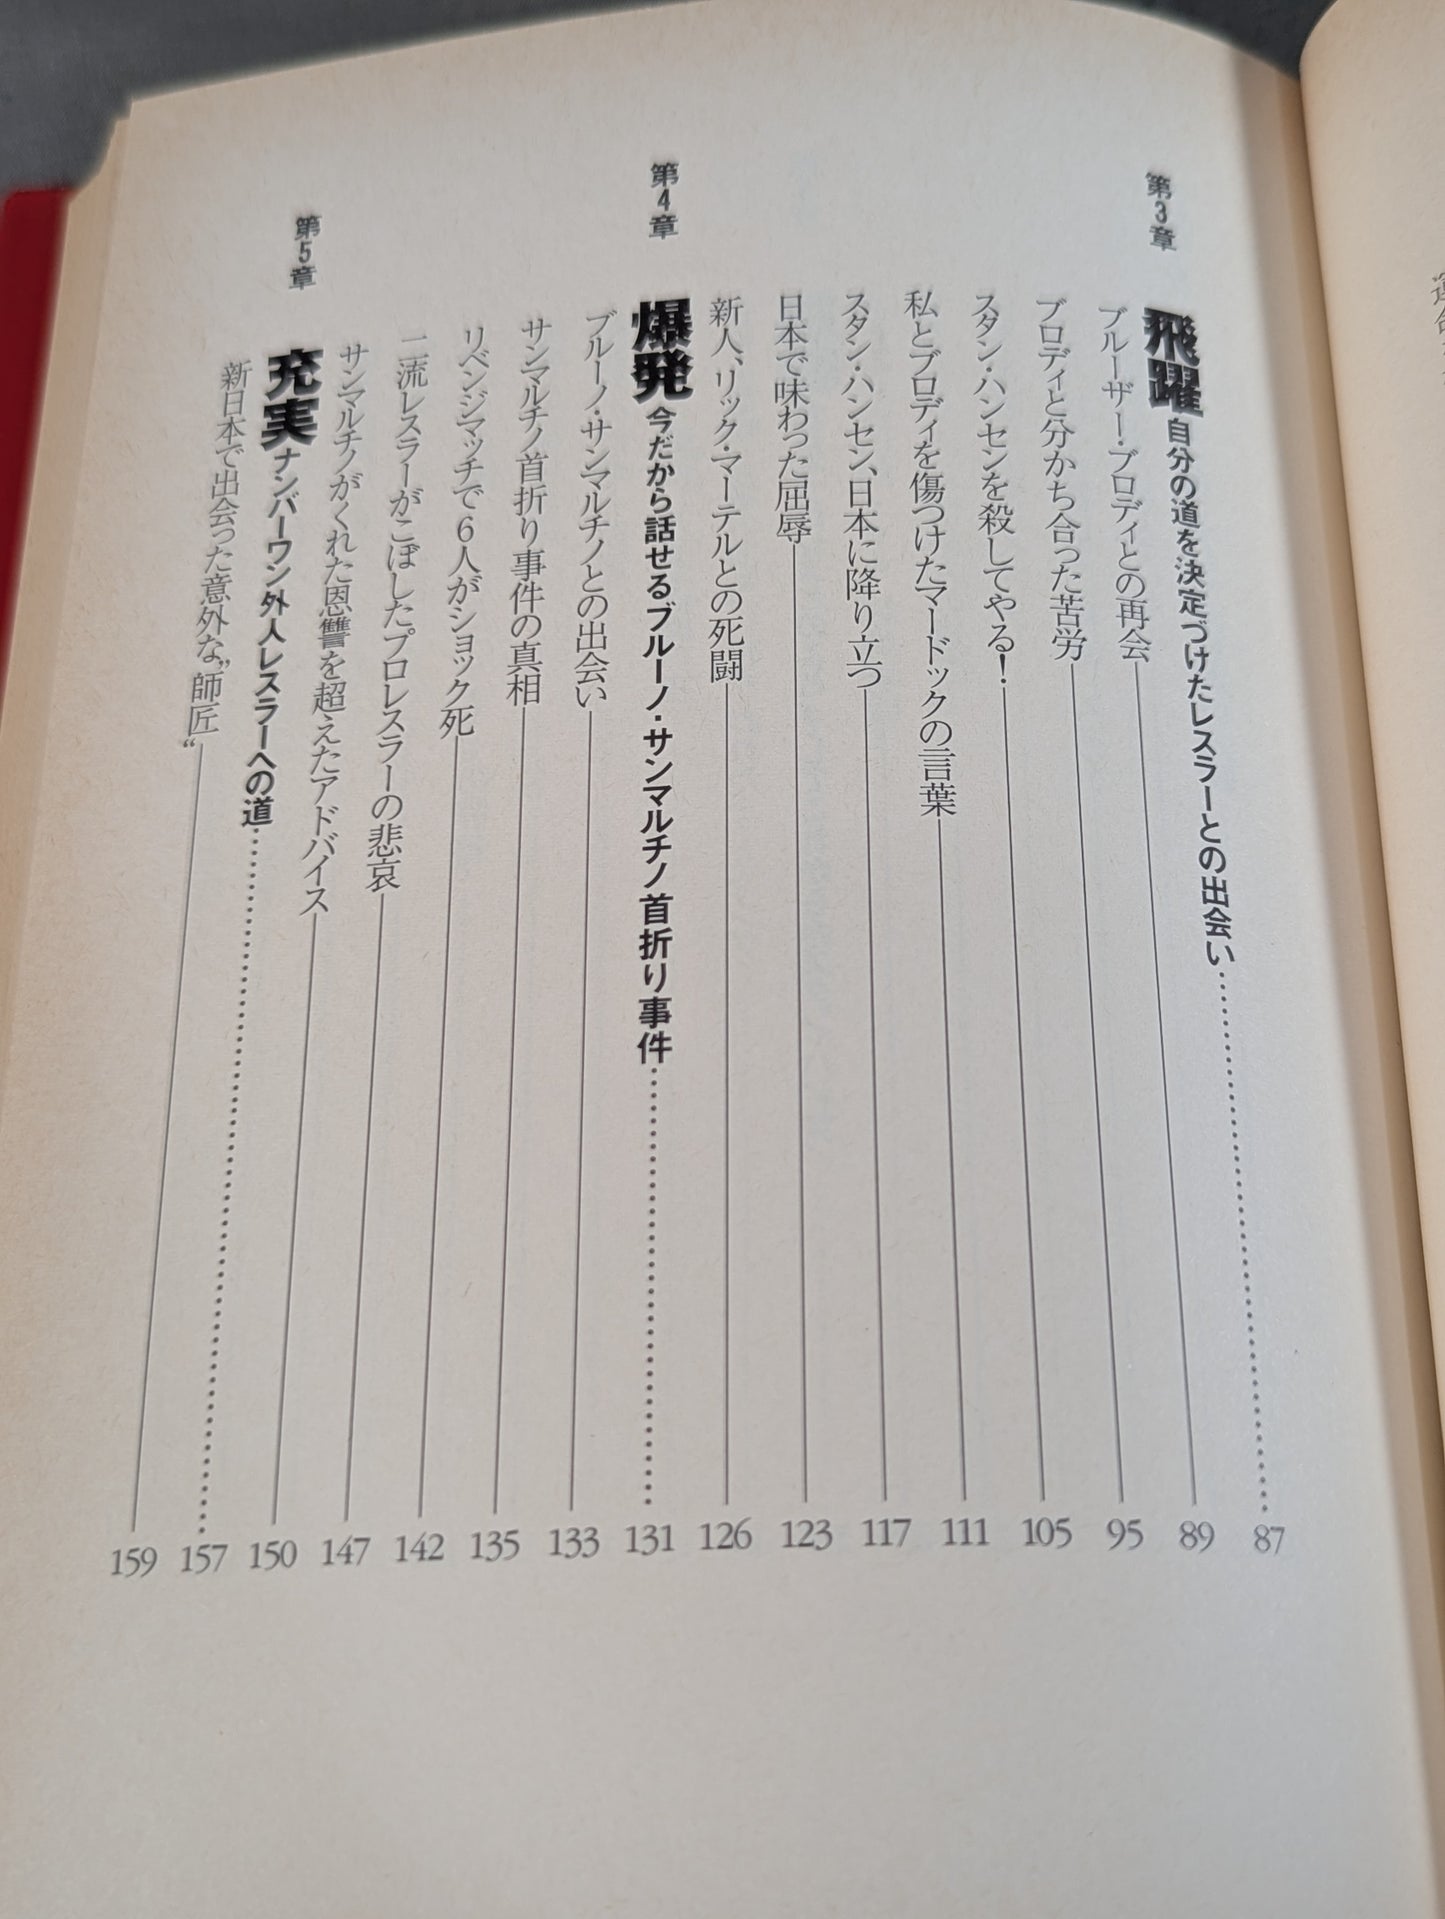 第3章 飛躍 自分の道を決定づけたレスラーとの出会い 87
ブルーザー・ブロディとの再会 89
ブロディと分かち合った苦労 95
スタン・ハンセンを殺してやる! 105
私とブロディを傷つけたマードックの言葉 111
スタン・ハンセン、日本に降り立つ 117
日本で味わった屈辱 123
新人、リック・マーテルとの死闘 126
第4章 爆発 今だから話せるブルーノ・サンマルチノ首折り事件 131
ブルーノ・サンマルチノとの出会い 133
サンマルチノ首折り事件の真相 135
リベンジマッチで6人がショック死 142
二流レスラーがこぼしたプロレスラーの悲哀 147
サンマルチノがくれた恩讐を超えたアドバイス 150
第5章 充実 ナンバーワン外人レスラーへの道 157
新日本で出会った意外な"師匠" 159